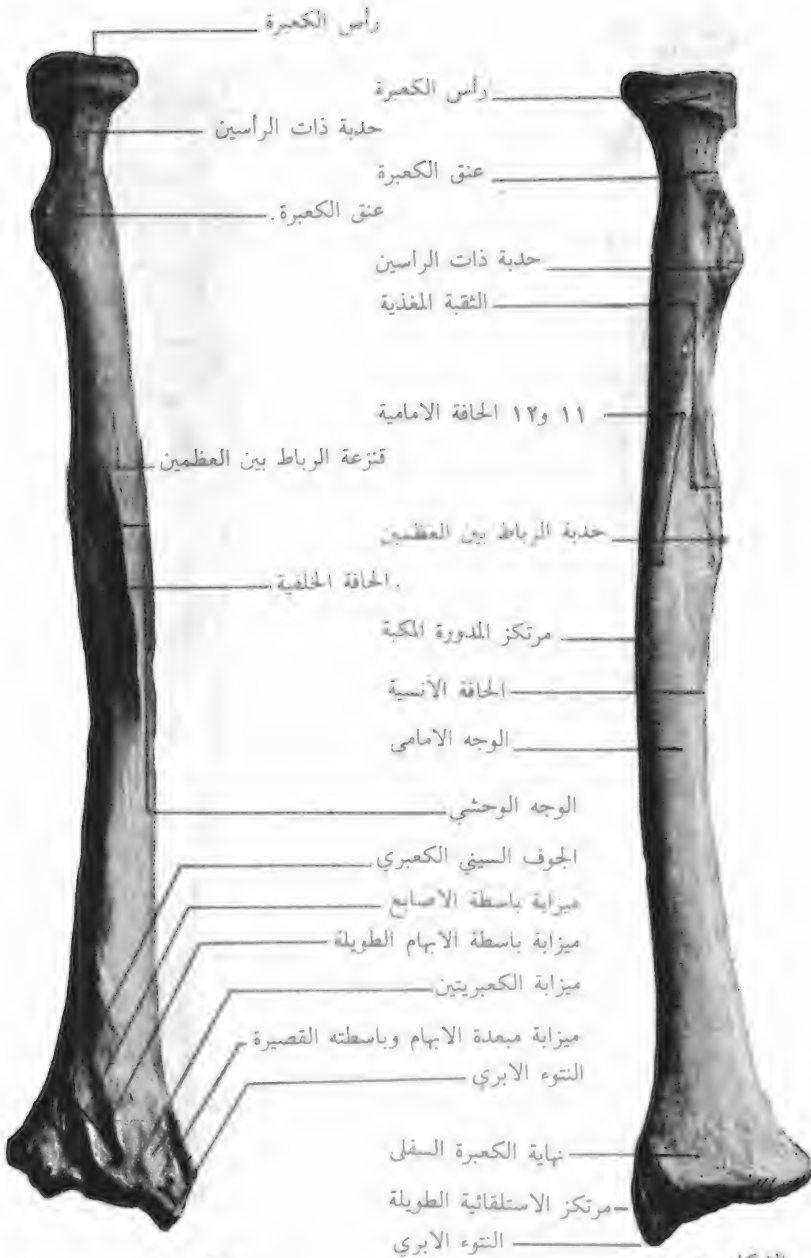 رأس الكعبرة
رأس الكعبرة
حدبة ذات الرأسين
عنق الكعبرة
عنق الكعبرة.
حدبة ذات الراسين
الثقبة المغذية
١١ و١٢ الحافة الامامية
قنزعة الرباط بين العظمين
حدبة الرباط بين العظمين
الحافة الخلفية.
مرتكز المدورة المكبة
الحافة الأنسية
الوجه الامامي
الوجه الوحشي
الجوف السيني الكعبري
ميزابة باسطة الاصابع
ميزابة باسطة الابهام الطويلة
ميزابة الكعبريتين
ميزابة مبعدة الابهام وباسطته القصيرة
النتوء الابري
نهاية الكعبرة السفلى
مرتكز الاستلقائية الطويلة
النتوء الابري